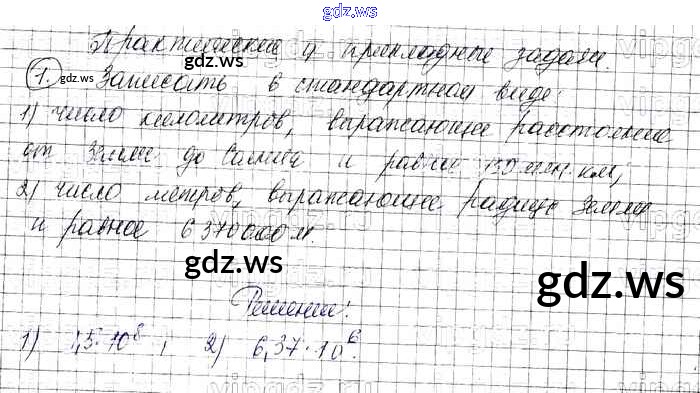 gdz.ws
Практические и прикладные задачи.
1. Записать в стандартном виде:
1) число километров, выражающее расстояние
от Земли до Солнца и равное 150 млн. км;
2) число метров, выражающее радиус Земли
и равное 6 370 000 м.
gdz.ws
gdz.ws
gdz.ws
gdz.ws
Решение:
1) 1,5·10⁸; 2) 6,37·10⁶.
gdz.ws
gdz.ws
gdz.ws